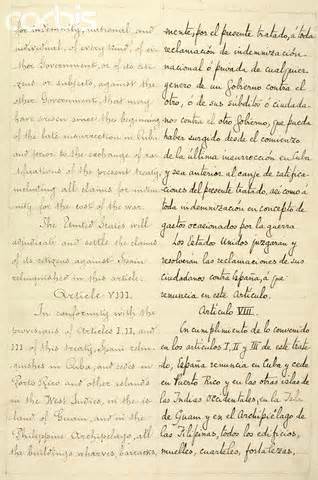 corbis
for indemnity, national and
individual, of every kind, of ei-
ther Government, or of its citi-
zens or subjects, against the
other Government, that may
have arisen since the beginning
of the late insurrection in Cuba
and prior to the exchange of ra-
tifications of the present treaty,
including all claims for indem-
nity for the cost of the war.
The United States will
adjudicate and settle the claims
of its citizens against Spain
relinquished in this article.
Article VIII.
In conformity with the
provisions of Articles I, II, and
III of this treaty, Spain relin-
quishes in Cuba, and cedes in
Porto Rico and other islands
in the West Indies, in the is-
land of Guam, and in the
Philippine Archipelago, all
the buildings, wharves, barracks,
mente, por el presente tratado, á toda
reclamación de indemnización
nacional ó privada de cualquier
género de un Gobierno contra el
otro, ó de sus subditos ó ciudada-
nos contra el otro Gobierno, que pueda
haber surgido desde el comienzo
de la última insurrección en Cuba
y sea anterior al canje de ratifica-
ciones del presente tratado, así como á
toda indemnización en concepto de
gastos ocasionados por la guerra.
Los Estados Unidos juzgarán y
resolverán las reclamaciones de sus
ciudadanos contra España, á que
renuncia en este Artículo.
Artículo VIII.
En cumplimiento de lo convenido
en los artículos I, II y III de este trata-
do, España renuncia en Cuba y cede
en Puerto Rico y en las otras islas de
las Indias Occidentales, en la Isla
de Guam y en el Archipiélago de
las Filipinas, todos los edificios,
muelles, cuarteles, fortalezas,